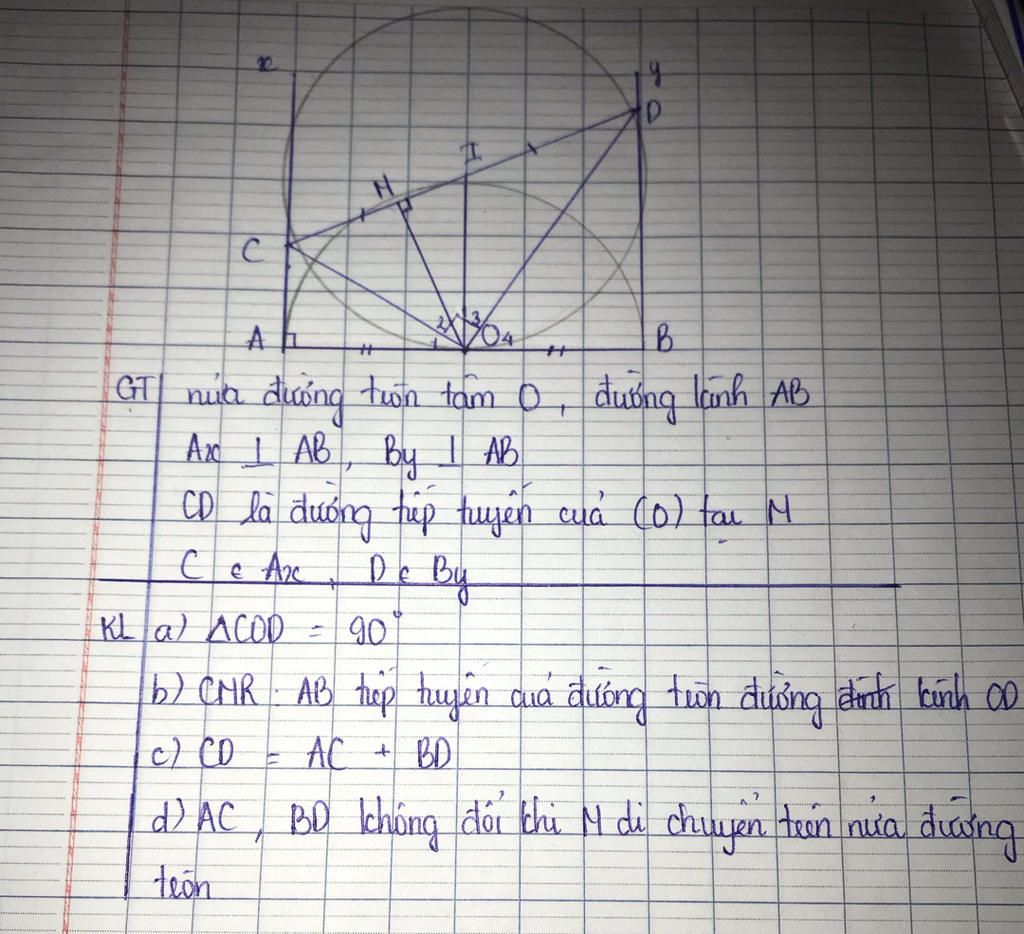 x
y
D
I
M
C
2 3
A
O 4
B
GT nửa đường tròn tâm O, đường kính AB
Ax ⊥ AB, By ⊥ AB
CD là đường tiếp tuyến của (O) tại M
C ∈ Ax, D ∈ By
KL a) ΔCOD = 90°
b) CMR: AB tiếp tuyến của đường tròn đường kính CD
c) CD = AC + BD
d) AC, BD không đổi khi M di chuyển trên nửa đường
tròn